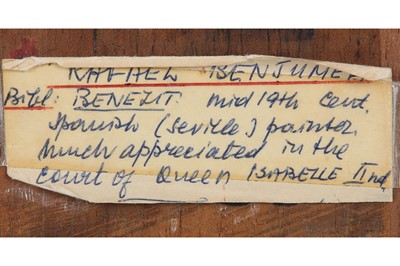 RAFAEL BENJUMEA
Bibl: BENEZIT. mid 19th cent.
Spanish (Seville) painter.
Much appreciated in the
court of Queen ISABELLE IInd